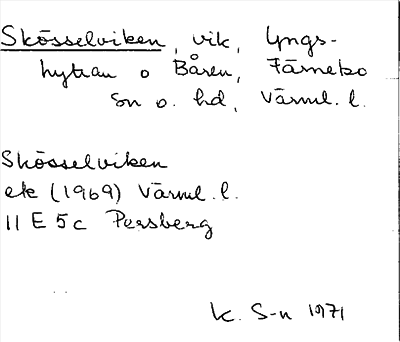 Skösselviken, vik, Lyngs-
hyttan o Båren, Färnebo
sn o. hd, Värml. l.
Skösselviken
ek (1969) Värml. l.
11 E 5 c Persberg
K. S-n 1971